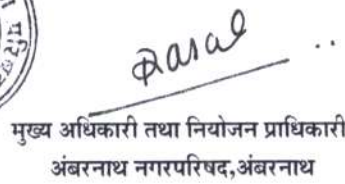 Rasal
मुख्य अधिकारी तथा नियोजन प्राधिकारी
अंबरनाथ नगरपरिषद,अंबरनाथ